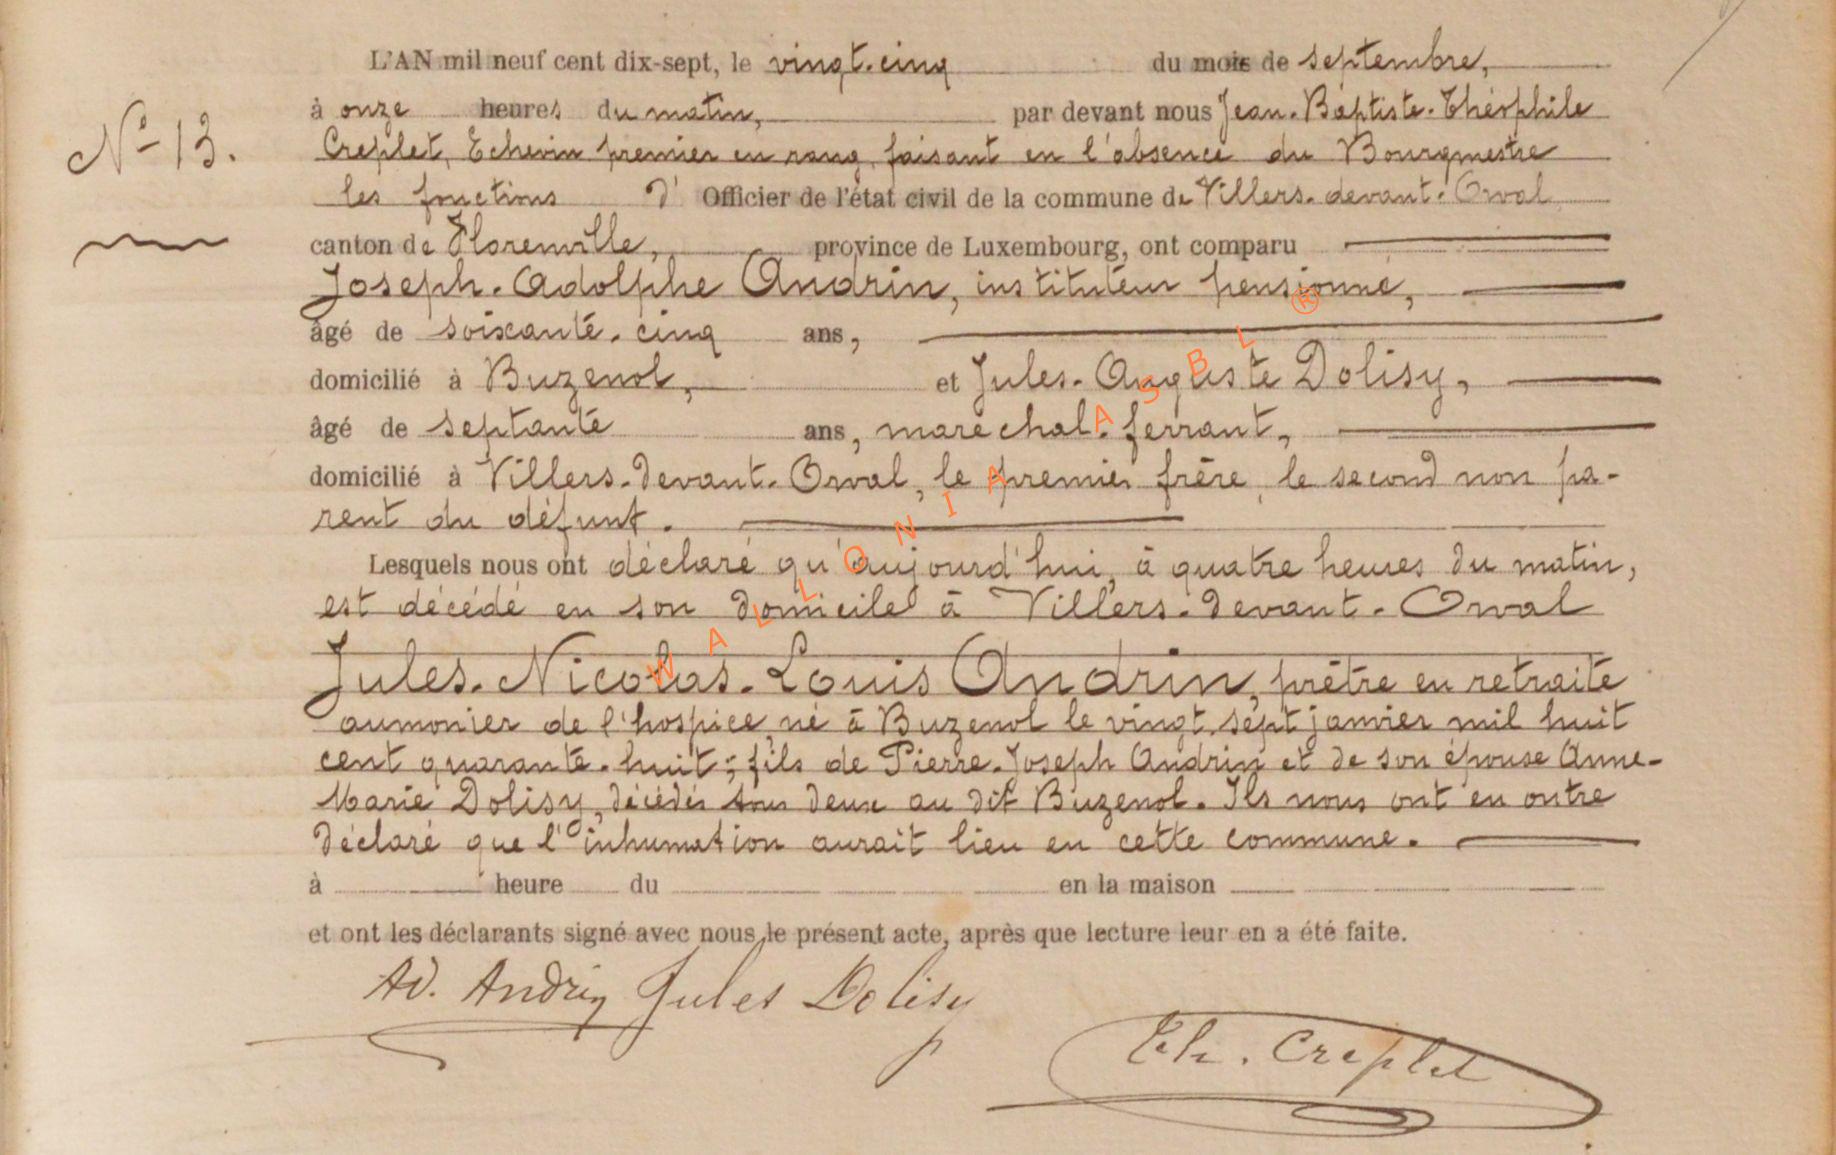 L'AN mil neuf cent dix-sept, le vingt-cinq du mois de septembre,
à onze heures du matin, par devant nous Jean-Baptiste-Théophile
N° 13.
Creplet, Echevin premier en rang, faisant en l'absence du Bourgmestre
les fonctions d'Officier de l'état civil de la commune de Villers-devant-Orval
canton de Florenville, province de Luxembourg, ont comparu
Joseph-Adolphe Andrin, instituteur pensionné,
âgé de soixante-cinq ans,
domicilié à Buzenol, et Jules-Auguste Dolisy,
âgé de septante ans, maréchal-ferrant,
domicilié à Villers-devant-Orval, le premier frère, le second non pa-
rent du défunt.
Lesquels nous ont déclaré qu'aujourd'hui, à quatre heures du matin,
est décédé en son domicile à Villers-devant-Orval
Jules-Nicolas-Louis Andrin, prêtre en retraite
aumonier de l'hospice, né à Buzenol le vingt-sept janvier mil huit
cent quarante-huit; fils de Pierre-Joseph Andrin et de son épouse Anne-
Marie Dolisy, décédés tous deux au dit Buzenol. Ils nous ont en outre
déclaré que l'inhumation aurait lieu en cette commune.
à heure du en la maison
et ont les déclarants signé avec nous le présent acte, après que lecture leur en a été faite.
Ad. Andrin Jules Dolisy
Th. Creplet
WALLONIA ASBL ®